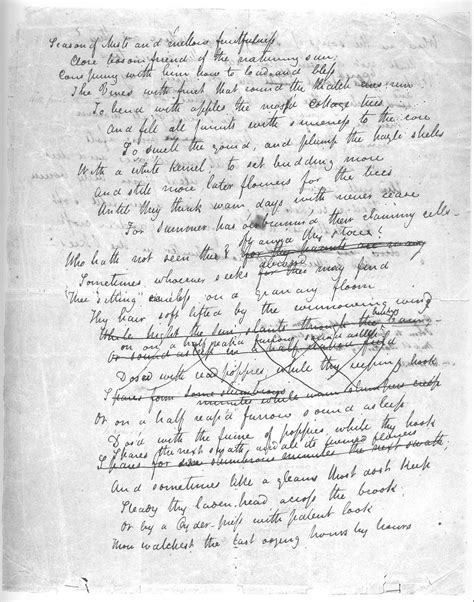 Season of Mists and mellow fruitfulness
Close bosom friend of the maturing sun;
Conspiring with him how to load and bless
The Vines with fruit that round the thatch eves run
To bend with apples the moss'd Cottage trees
And fill all fruits with sweeness to the core
To swell the gourd, and plump the hazle shells
With a white kernel; to set budding more
And still more later flowers for the bees
Until they think wam days with never cease
For Summer has o'erbrimm'd their clammy cells—
Who hath not seen thee?
Sometimes whoever seeks abroad may find
Thee sitting careless on a granary floor
Thy hair soft lifted by the winnowing wind
While bright the Sun slants through the
on on a half reap'd furrow sound asleep
Or sound asleep in a half reaped field
Dosed with red poppies; while thy reeping hook
Spares form some slumbrous
minutes while wam slumpers creep
Or on a half reap'd furrow sound asleep
Dos'd with the fume of poppies, while thy hook
Spares the next swath and all its twined flowers
Spares for some slumbrous minutes the next swath;
And sometimes like a gleans thost dost keep
Steady thy laden head across the brook;
Or by a Cyder-press with patent look
Thou watchest the last oozing hours by hours